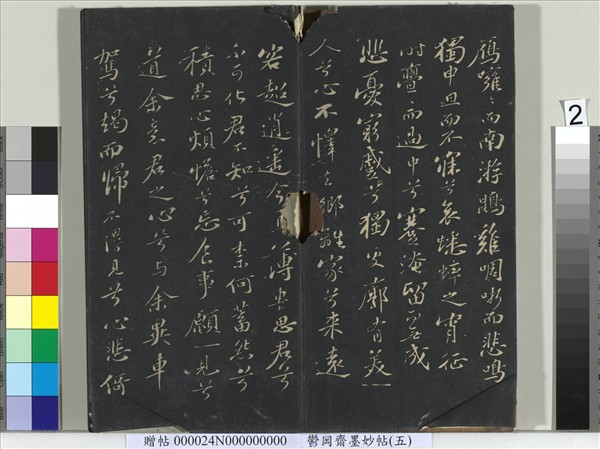 鴈噰〻而南游鵾雞啁哳而悲鳴
獨申旦而不寐兮哀蟋蟀之宵征
時亹〻而過中兮蹇淹留而無成
悲憂窮慼兮獨處廓有美一
人兮心不懌去鄉離家兮来遠
客超逍遥今薄專思君兮
不可化君不知兮可柰何蓄怨兮
積思心煩憺兮忘食事願一見兮
道余意君之心兮与余異車
駕兮朅而歸不得見兮心悲倚
2
贈帖 000024N000000000 鬱岡齋墨妙帖(五)